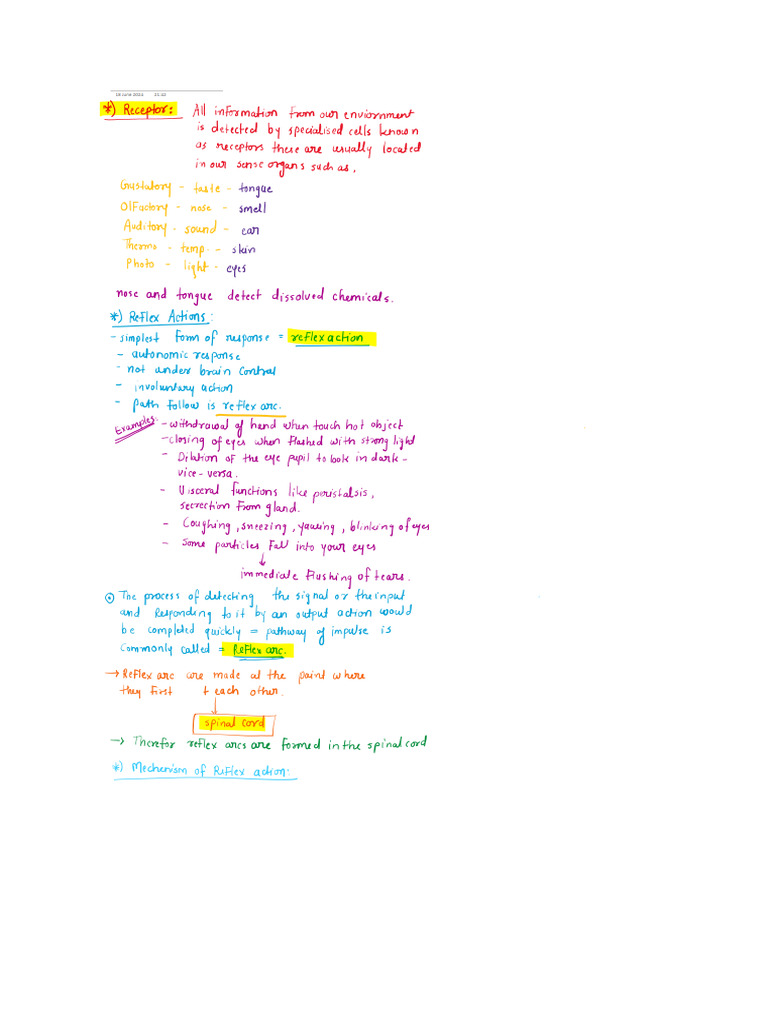 18 June 2024 21:42
*) Receptor: All information from our enviornment
is detected by specialised cells known
as receptors these are usually located
in our sense organs such as,
Gustatory - taste - tongue
Olfactory - nose - smell
Auditory - sound - ear
Thermo - temp. - skin
Photo - light - eyes
nose and tongue detect dissolved chemicals.
*) Reflex Actions:
- simplest form of response = reflex action
- autonomic response
- not under brain control
- involuntary action
- path follow is reflex arc.
Examples: - withdrawal of hand when touch hot object
- closing of eyes when flashed with strong light
- Dilation of the eye pupil to look in dark -
vice-versa.
- Visceral functions like peristalsis,
secretion from gland.
- Coughing, sneezing, yawing, blinking of eyes
- Some particles fall into your eyes
↓
immediate flushing of tears.
⊙ The process of detecting the signal or the input
and Responding to it by an output action would
be completed quickly = pathway of impulse is
commonly called = Reflex arc.
→ Reflex arc are made at the point where
they first t each other.
↓
spinal cord
→ Therefor reflex arcs are formed in the spinal cord
*) Mechenism of Reflex action: